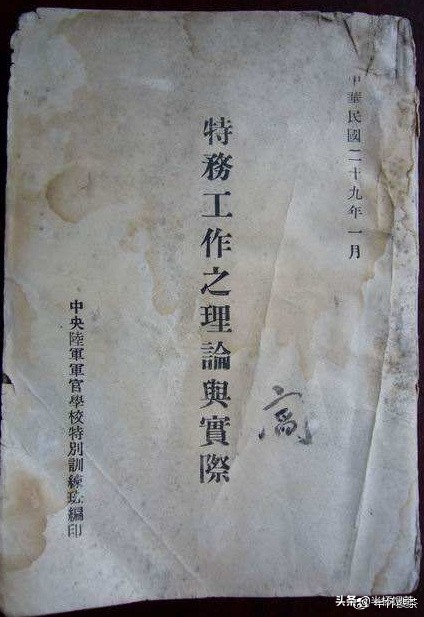 中華民國二十九年一月
高
特務工作之理論與實際
中央陸軍軍官學校特別訓練班編印
头条